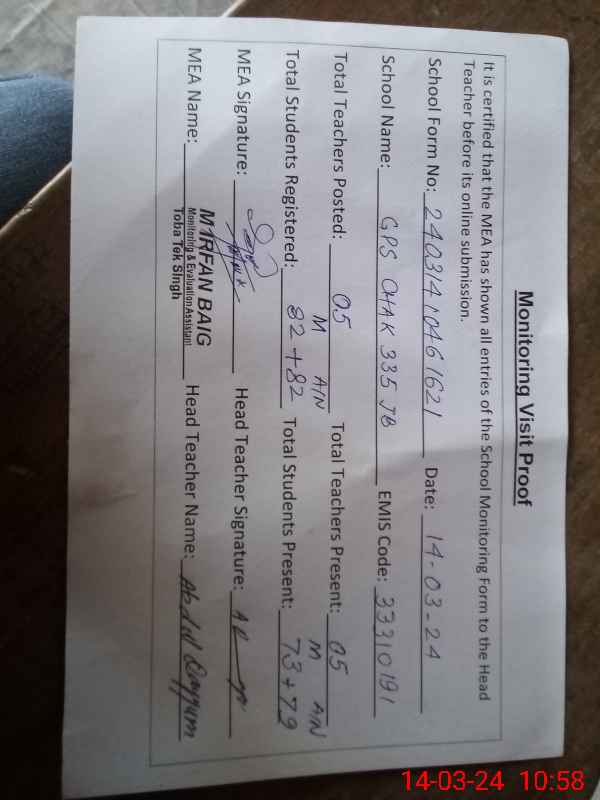 Monitoring Visit Proof
It is certified that the MEA has shown all entries of the School Monitoring Form to the Head
Teacher before its online submission.
School Form No: 24031410461621 Date: 14-03-24
School Name: GPS CHAK 335 JB EMIS Code: 33310191
Total Teachers Posted: 05 Total Teachers Present: 05
M A/N M A/N
Total Students Registered: 82+82 Total Students Present: 73+79
MEA Signature: Head Teacher Signature:
MEA Name: M IRFAN BAIG Head Teacher Name: Abdul Qayyum
Monitoring & Evaluation Assistant
Toba Tek Singh
14-03-24 10:58